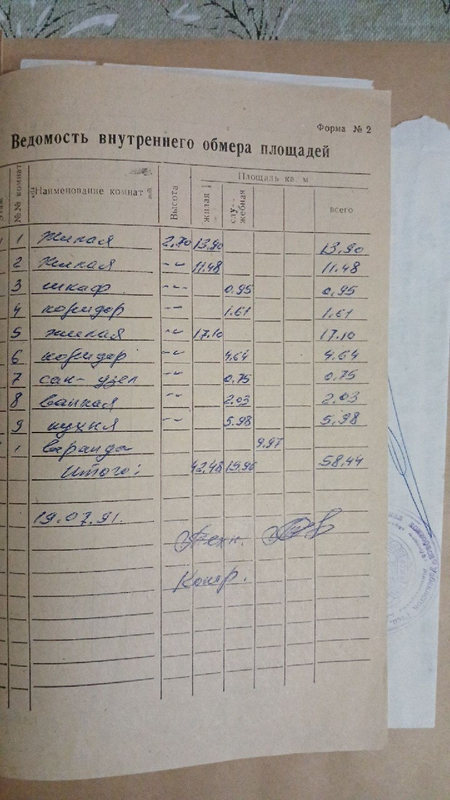 Форма № 2
Ведомость внутреннего обмера площадей
№№ комнат Наименование комнат Высота Площадь кв. м
жилая служебная всего
1 жилая 2.70 13.90 13.90
2 жилая -"- 11.48 11.48
3 шкаф -"- 0.95 0.95
4 коридор -"- 1.61 1.61
5 жилая -"- 17.10 17.10
6 коридор -"- 4.64 4.64
7 сан-узел -"- 0.75 0.75
8 ванная -"- 2.03 2.03
9 кухня -"- 5.98 5.98
1 веранда 9.97
Итого: 42.48 15.96 58.44
19.07.91.
Техн.
Контр.